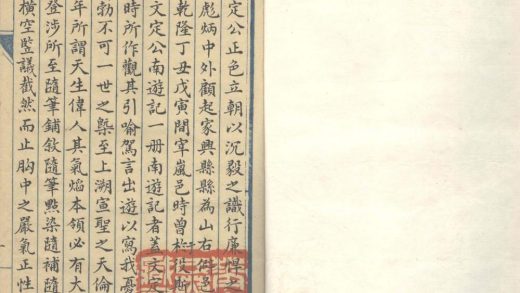 定公正色立朝以沉毅之識行廉悍之
彪炳中外顧起家興縣縣為山右僻邑
乾隆丁丑戊寅間宰嵐邑時曾於役斯
文定公南遊記一册南遊記者蓋文定
時所作觀其引喻駕言出遊以寫我憂
勃不可一世之槩至上溯宣聖之天倫
年所謂天生偉人其氣焰本領必有大
登涉所至隨筆鋪敘隨筆點染隨補隨
橫空豎議截然而止胸中之嚴氣正性